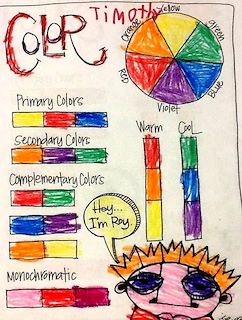 TimoTh
COLOR
Yellow
Orange
green
Red
Blue
Violet
Primary Colors
Secondary Colors
Complementary Colors
Monochromatic
Warm
CooL
Hey...
I'm Roy.